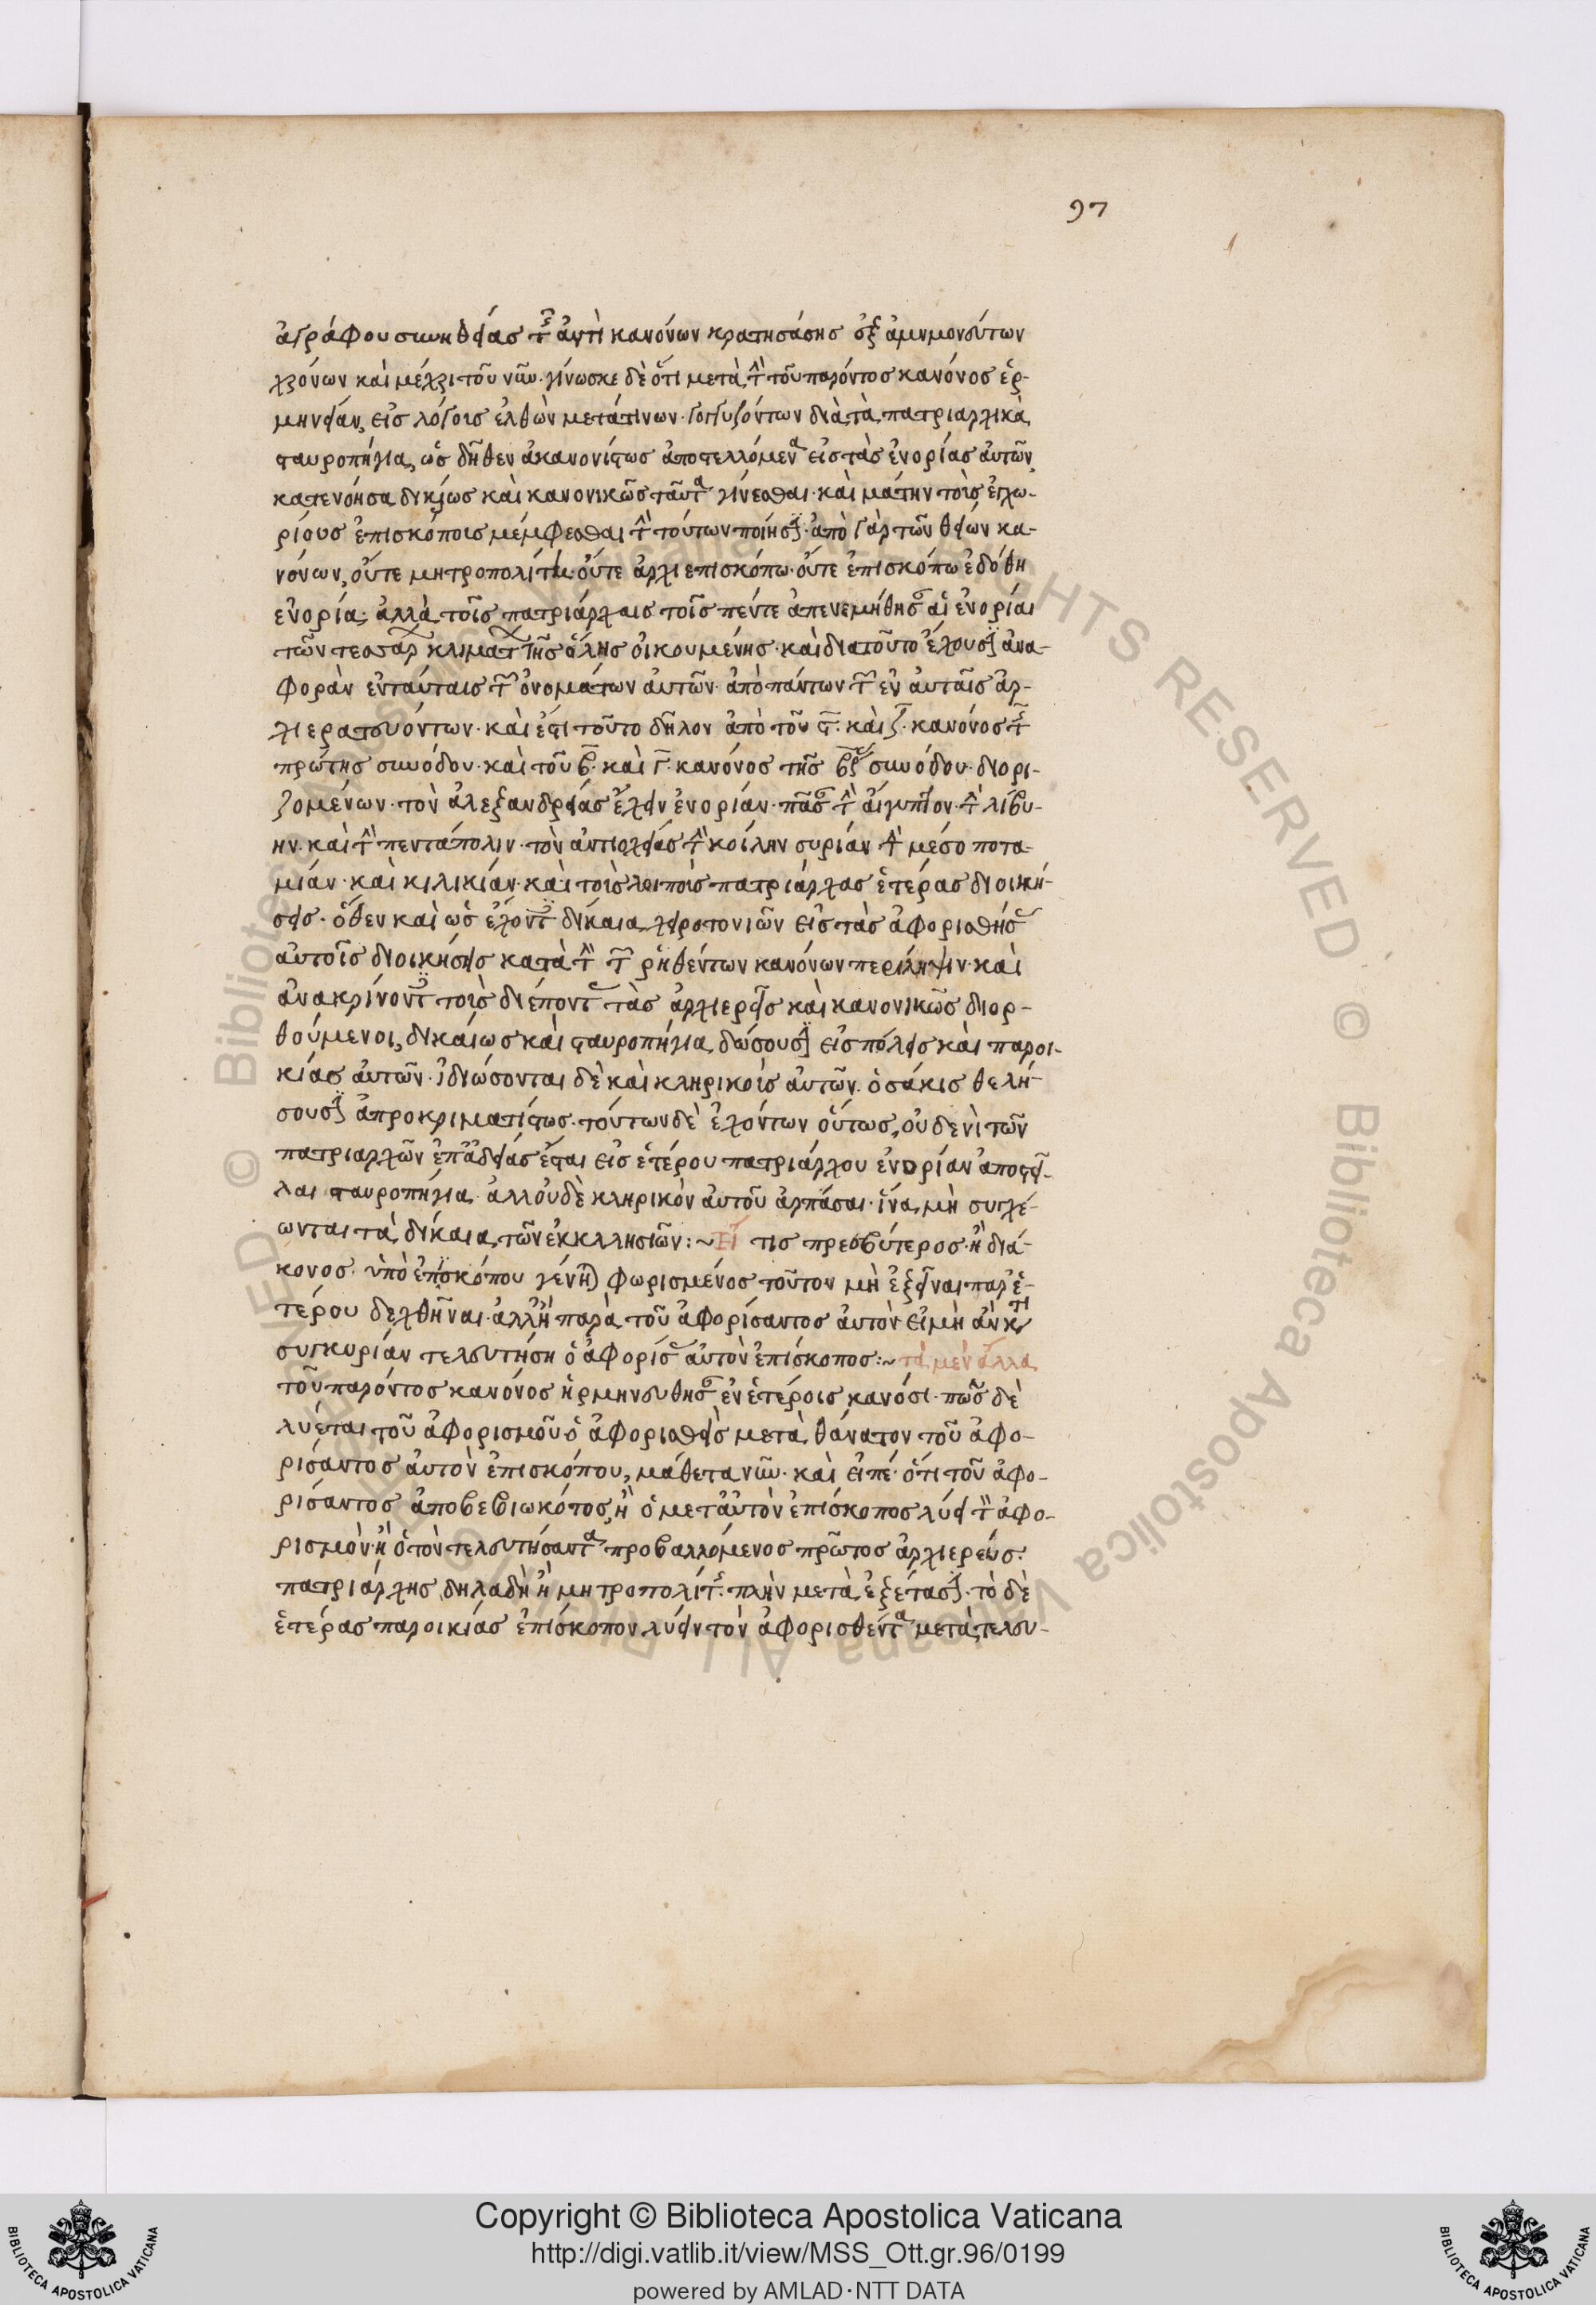 97
ἀγράφου συνηθείας τῆς ἀντὶ κανόνων κρατησάσης ἐξ ἀμνημονεύτων
χρόνων καὶ μέχρι τοῦ νῦν· γίνωσκε δὲ ὅτι μετὰ τὴν τοῦ παρόντος κανόνος ἑρ-
μηνείαν, εἰς λόγους ἐλθὼν μετά τινων γογγυζόντων διὰ τὰ πατριαρχικὰ
σταυροπήγια, ὡς δῆθεν ἀκανονίστως ἀποστελλόμενα εἰς τὰς ἐνορίας αὐτῶν,
κατενόησα δικαίως καὶ κανονικῶς ταῦτα γίνεσθαι· καὶ μάτην τοὺς ἐγχω-
ρίους ἐπισκόπους μέμφεσθαι τὴν τούτων ποίησιν· ἀπὸ γὰρ τῶν θείων κα-
νόνων, οὔτε μητροπολίτῃ· οὔτε ἀρχιεπισκόπω· οὔτε ἐπισκόπω ἐδόθη
ἐνορία· ἀλλὰ τοῖς πατριάρχαις τοῖς πέντε ἀπενεμήθησαν αἱ ἐνορίαι
τῶν τεσσάρων κλιμάτων τῆς ὅλης οἰκουμένης· καὶ διατοῦτο ἔχουσιν ἀνα-
φορὰν ἐνταύταις τῶν ὀνομάτων αὐτῶν· ἀπὸ πάντων τῶν ἐν αὐταῖς ἀρ-
χιερατευόντων· καὶ ἔστι τοῦτο δῆλον ἀπὸ τοῦ ϛ· καὶ ζ· κανόνος τῆς
πρώτης συνόδου· καὶ τοῦ β· καὶ γ· κανόνος τῆς βας συνόδου· διορι-
ζομένων· τὸν ἀλεξανδρείας ἔχειν ἐνορίαν· πᾶσαν τὴν αἴγυπτον· τὴν λιβύ-
ην· καὶ τὴν πεντάπολιν· τὸν ἀντιοχείας τὴν κοίλην συρίαν τὴν μεσοποτα-
μίαν· καὶ κιλικίαν· καὶ τοὺς λοιποὺς πατριάρχας ἑτέρας διοικη-
σεις· ὅθεν καὶ ὡς ἔχοντες δίκαια χειροτονιῶν εἰς τὰς ἀφορισθείσας
αὐτοῖς διοικήσεις κατὰ τὴν τῶν ῥηθέντων κανόνων περίληψιν· καὶ
ἀνακρίνοντες τοὺς διέποντας τὰς ἀρχιερεῖς καὶ κανονικῶς διορ-
θούμενοι, δικαίως καὶ σταυροπήγια δώσουσιν εἰς πόλεις καὶ παροι-
κίας αὐτῶν· ἰδιώσονται δὲ καὶ κληρικοὺς αὐτῶν· ὁσάκις θελή-
σουσιν ἀπροκριματίστως· τούτων δὲ ἐχόντων οὕτως, οὐδενὶ τῶν
πατριαρχῶν ἐπ᾽ ἀδείας ἔσται εἰς ἑτέρου πατριάρχου ἐνορίαν ἀποστεῖ-
λαι σταυροπήγια· ἀλλοὐδὲ κληρικὸν αὐτοῦ ἁρπάσαι· ἵνα μὴ συγχέ-
ωνται τὰ δίκαια τῶν ἐκκλησιῶν:~ Εἴ τις πρεσβύτερος· ἢ διά-
κονος· ὑπὸ ἐπισκόπου γένηται φωρισμένος τοῦτον μὴ ἐξεῖναι παρ᾽ ἑ-
τέρου δεχθῆναι· ἀλλἢ παρὰ τοῦ ἀφορίσαντος αὐτὸν εἰμὴ ἂν κατὰ
συγκυρίαν τελευτήση ὁ ἀφορίσας αὐτὸν ἐπίσκοπος:~ τὰ μὲν ἄλλα
τοῦ παρόντος κανόνος ἡρμηνεύθησαν ἐν ἑτέροις κανόσι· πῶς δὲ
λυέται τοῦ ἀφορισμοῦ ὁ ἀφορισθεὶς μετὰ θάνατον τοῦ ἀφο-
ρίσαντος αὐτὸν ἐπισκόπου, μάθετα νῦν· καὶ εἰπὲ· ὅτι τοῦ ἀφο-
ρίσαντος ἀποβεβιωκότος, ἢ ὁ μετ᾽ αὐτὸν ἐπίσκοπος λύει τὸν ἀφο-
ρισμόν· ἢ ὁ τὸν τελευτήσαντα προβαλλόμενος πρῶτος ἀρχιερεύς·
πατριάρχης δηλαδὴ ἢ μητροπολίτης· πλὴν μετὰ ἐξέτασιν· τὸ δὲ
ἑτέρας παροικίας ἐπίσκοπον λύειν τὸν ἀφορισθέντα μετὰ τελευ-
Copyright © Biblioteca Apostolica Vaticana
http://digi.vatlib.it/view/MSS_Ott.gr.96/0199
powered by AMLAD·NTT DATA
BIBLIOTECA APOSTOLICA VATICANA
BIBLIOTECA APOSTOLICA VATICANA